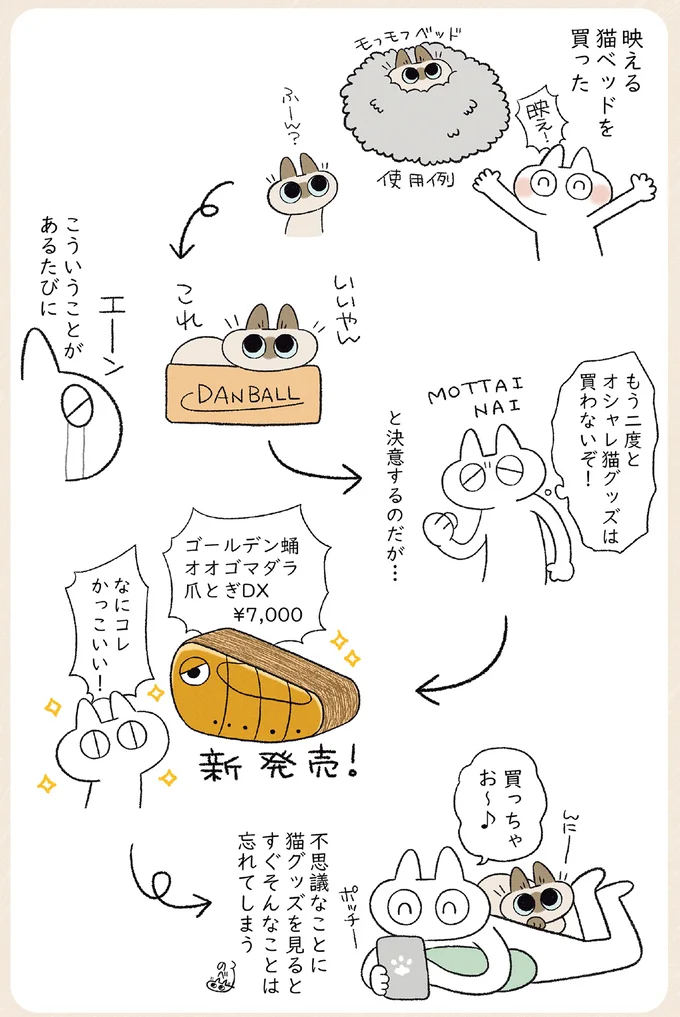 映える
猫ベッドを
買った
モフモフベッド
映え!
使用例
ふーん?
いいやん
これ
DANBALL
こういうことが
あるたびに
エーン
もう二度と
オシャレ猫グッズは
買わないぞ!
MOTTAI
NAI
と決意するのだが…
ゴールデン蛹
オオゴマダラ
爪とぎDX
¥7,000
新発売!
なにコレ
かっこいい!
買っちゃ
お〜♪
んにー
ポッチー
不思議なことに
猫グッズを見ると
すぐそんなことは
忘れてしまう